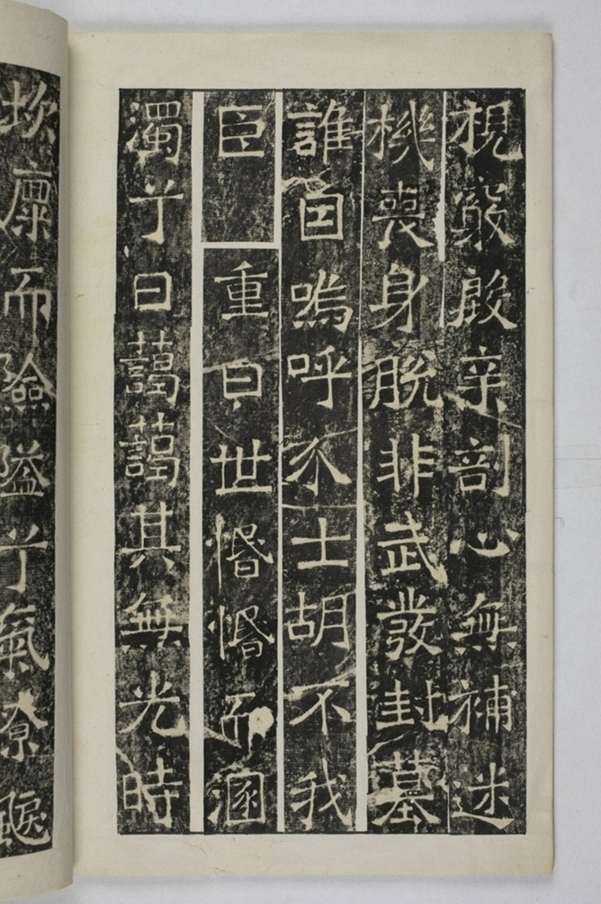 視竅殷辛剖心無補迷
機喪身脫非武發封墓
誰因嗚呼介士胡不我
臣 重曰世惛惛而溷
濁兮日藹藹其無光時
坎廩而險隘兮氣